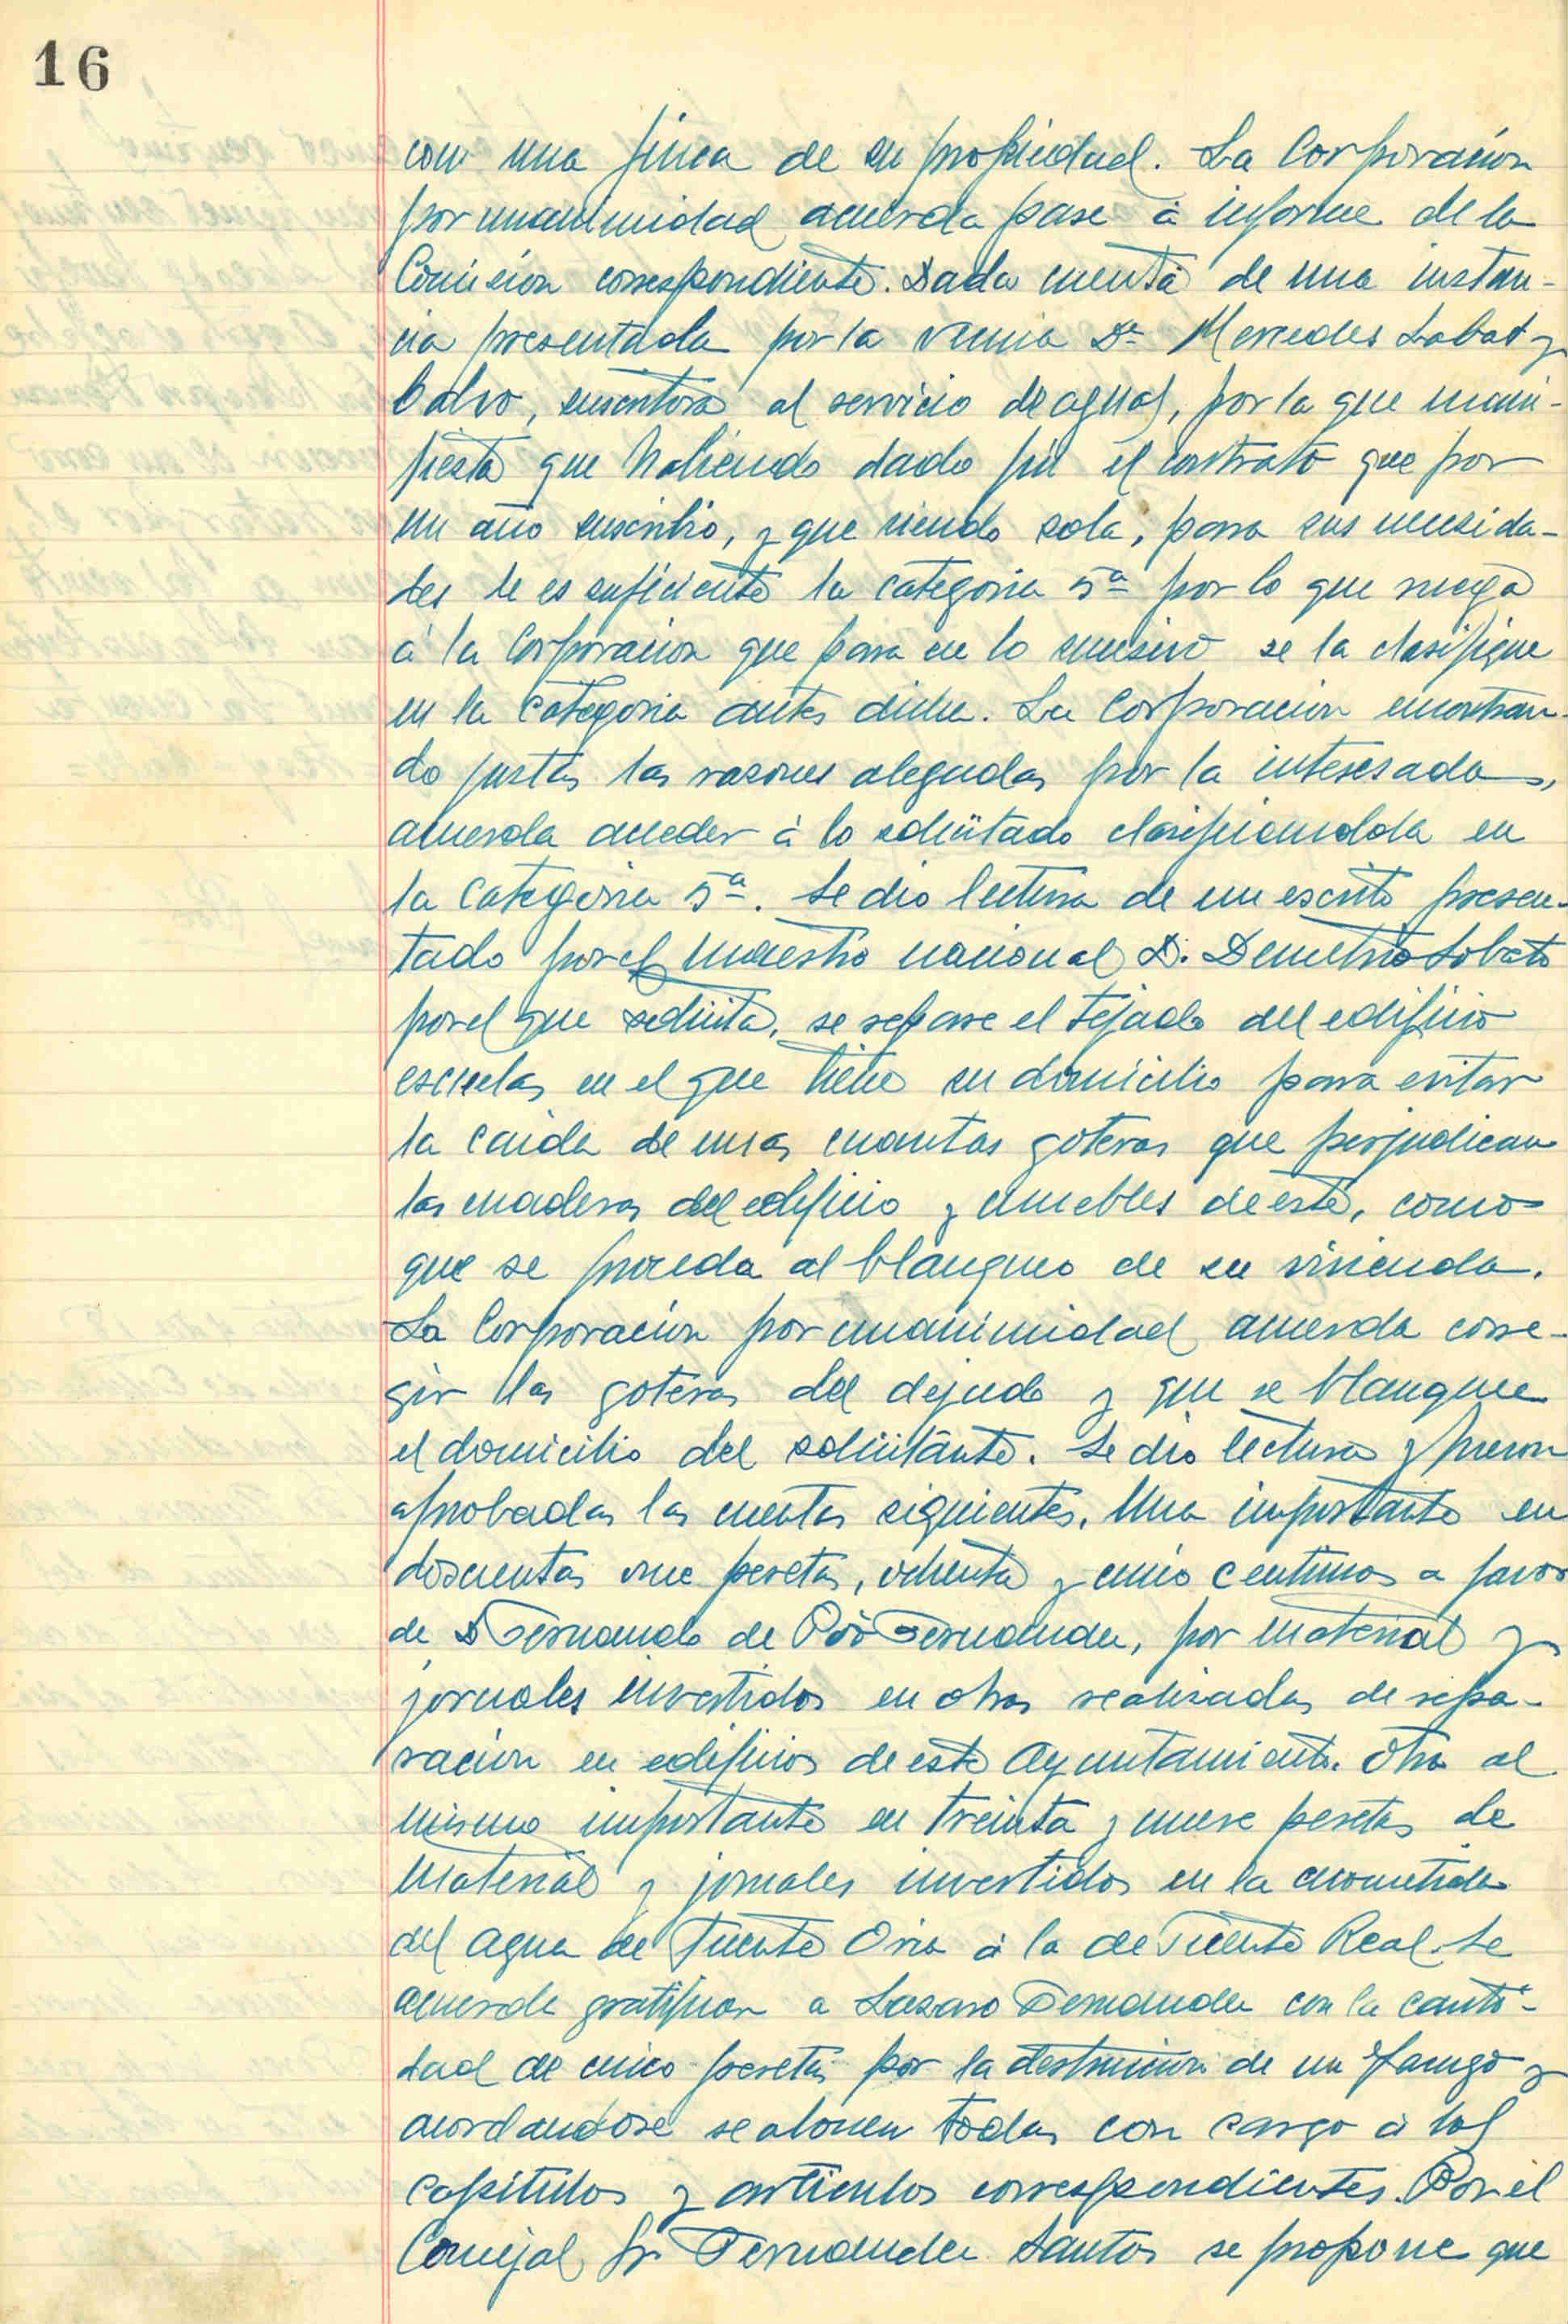 16
con una finca de su propiedad. La Corporación
por unanimidad acuerda pase á informe de la
Comision correspondiente. Dada cuenta de una instan-
cia presentada por la vecina Dª Mercedes Labat y
Calvo, suscritora al servicio de aguas, por la que mani-
fiesta que habiendo dado fin el contrato que por
un año suscribio, y que siendo sola, para sus necesida-
des le es suficiente la categoria 5ª por lo que ruega
á la Corporacion que para en lo sucesivo se la clasifique
en la categoria antes dicha. La Corporacion encontran-
do justas las razones alegadas por la interesada,
acuerda acceder á lo solicitado clasificandola en
la categoria 5ª. Se dio lectura de un escrito presen-
tado por el maestro nacional D. Demetrio Lobato
por el que solicita, se repare el tejado del edificio
escuelas en el que tiene su domicilio para evitar
la caida de unas cuantas goteras que perjudican
las maderas del edificio y muebles de este, como
que se proceda al blanqueo de su vivienda.
La Corporacion por unanimidad acuerda corre-
gir las goteras del dejado y que se blanquee
el domicilio del solicitante. Se dio lectura y fueron
aprobadas las cuentas siguientes. Una importante en
doscientas once pesetas, ochenta y cinco centimos a favor
de D Fernando de Fernandez, por material y
jornales invertidos en obras realizadas de repa-
racion en edificios de este Ayuntamiento. Otra al
mismo importante en treinta y nueve pesetas de
material y jornales invertidos en la acometida
del agua de Fuente Oria á la de Fuente Real. Se
acuerda gratificar a Lazaro Fernandez con la canti-
dad de cinco pesetas por la destruccion de un y
acordandose se abonen todas con cargo á los
capitulos y articulos correspondientes. Por el
Concejal Sr Fernandez Santos se propone que